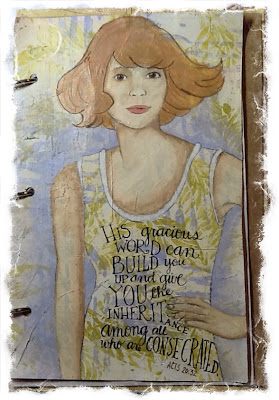 HiS gracious
WORD can
BUILD you
UP and give
YOU the
INHERIT
ANCE
Among all
who are CONSECRATED
ACTS 20:32